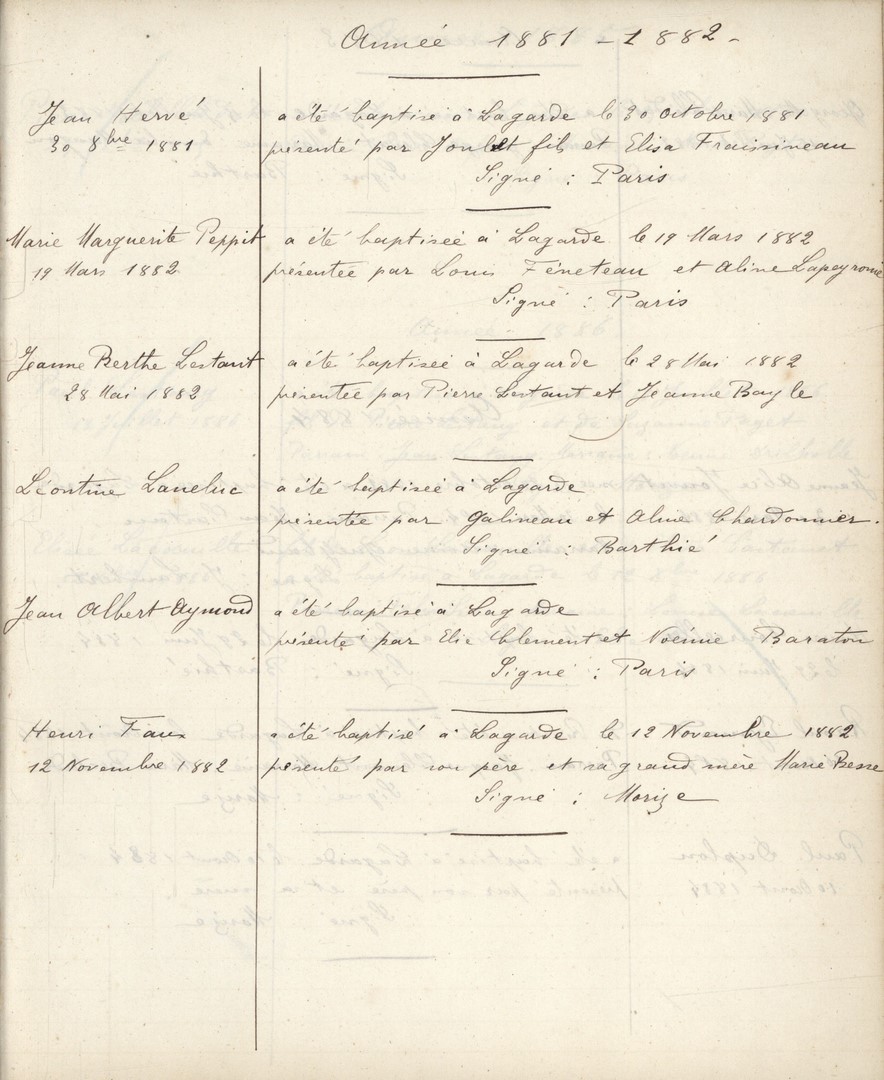 Année 1881 - 1882 -
Jean Hervé a été baptisé à Lagarde le 30 octobre 1881
30 8bre 1881 présenté par fils et Elisa Fraissineau
Signé : Paris
Marie Marguerite Peppit a été baptiseé à Lagarde le 19 Mars 1882
19 Mars 1882 présentée par Louis Féneteau et Aline Lapeyronie
Signé : Paris
Jeanne Berthe Lestant a été baptiseé à Lagarde le 28 Mai 1882
28 Mai 1882 présentée par Pierre Lestant et Jeanne Bayle
Léontine Laneluc a été baptiseé à Lagarde
présentée par Galineau et Aline Chardonnier.
Signé : Barthié
Jean Albert Aymond a été baptisé à Lagarde
présenté par Elie Clement et Noémie Baraton
Signé : Paris
Henri Faux a été baptisé à Lagarde le 12 Novembre 1882
12 Novembre 1882 présenté par son père et sa grand mère Marie Besse
Signé : Morize